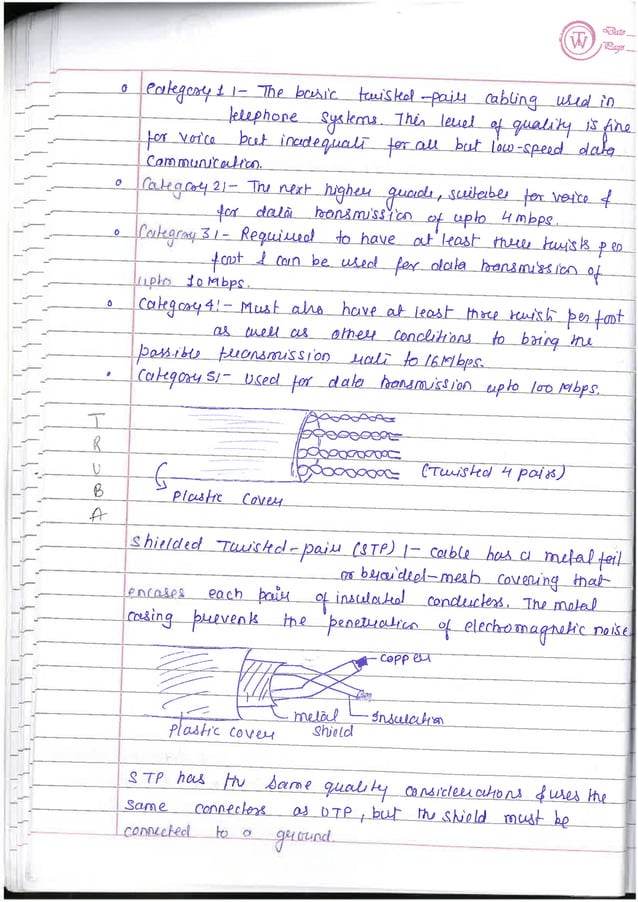 TW
Date
Page
Category 1 :- The basic twisted-pair cabling used in
telephone systems. This level of quality is fine
for voice but inadequate for all but low-speed data
communication.
Category 2 :- The next higher grade, suitable for voice &
for data transmission of upto 4 mbps.
Category 3 :- Required to have at least three twists per
foot & can be used for data transmission of
upto 10 Mbps.
Category 4 :- Must also have at least three twists per foot
as well as other conditions to bring the
possible transmission rate to 16 Mbps.
Category 5 :- Used for data transmission upto 100 Mbps.
TRUBA
(Twisted 4 pairs)
Plastic Cover
Shielded Twisted-pair (STP) :- cable has a metal foil
or braided-mesh covering that
encases each pair of insulated conductors. The metal
casing prevents the penetration of electromagnetic noise
copper
Insulation
metal
shield
Plastic cover
STP has the same quality considerations & uses the
same connectors as UTP, but the shield must be
connected to a ground.